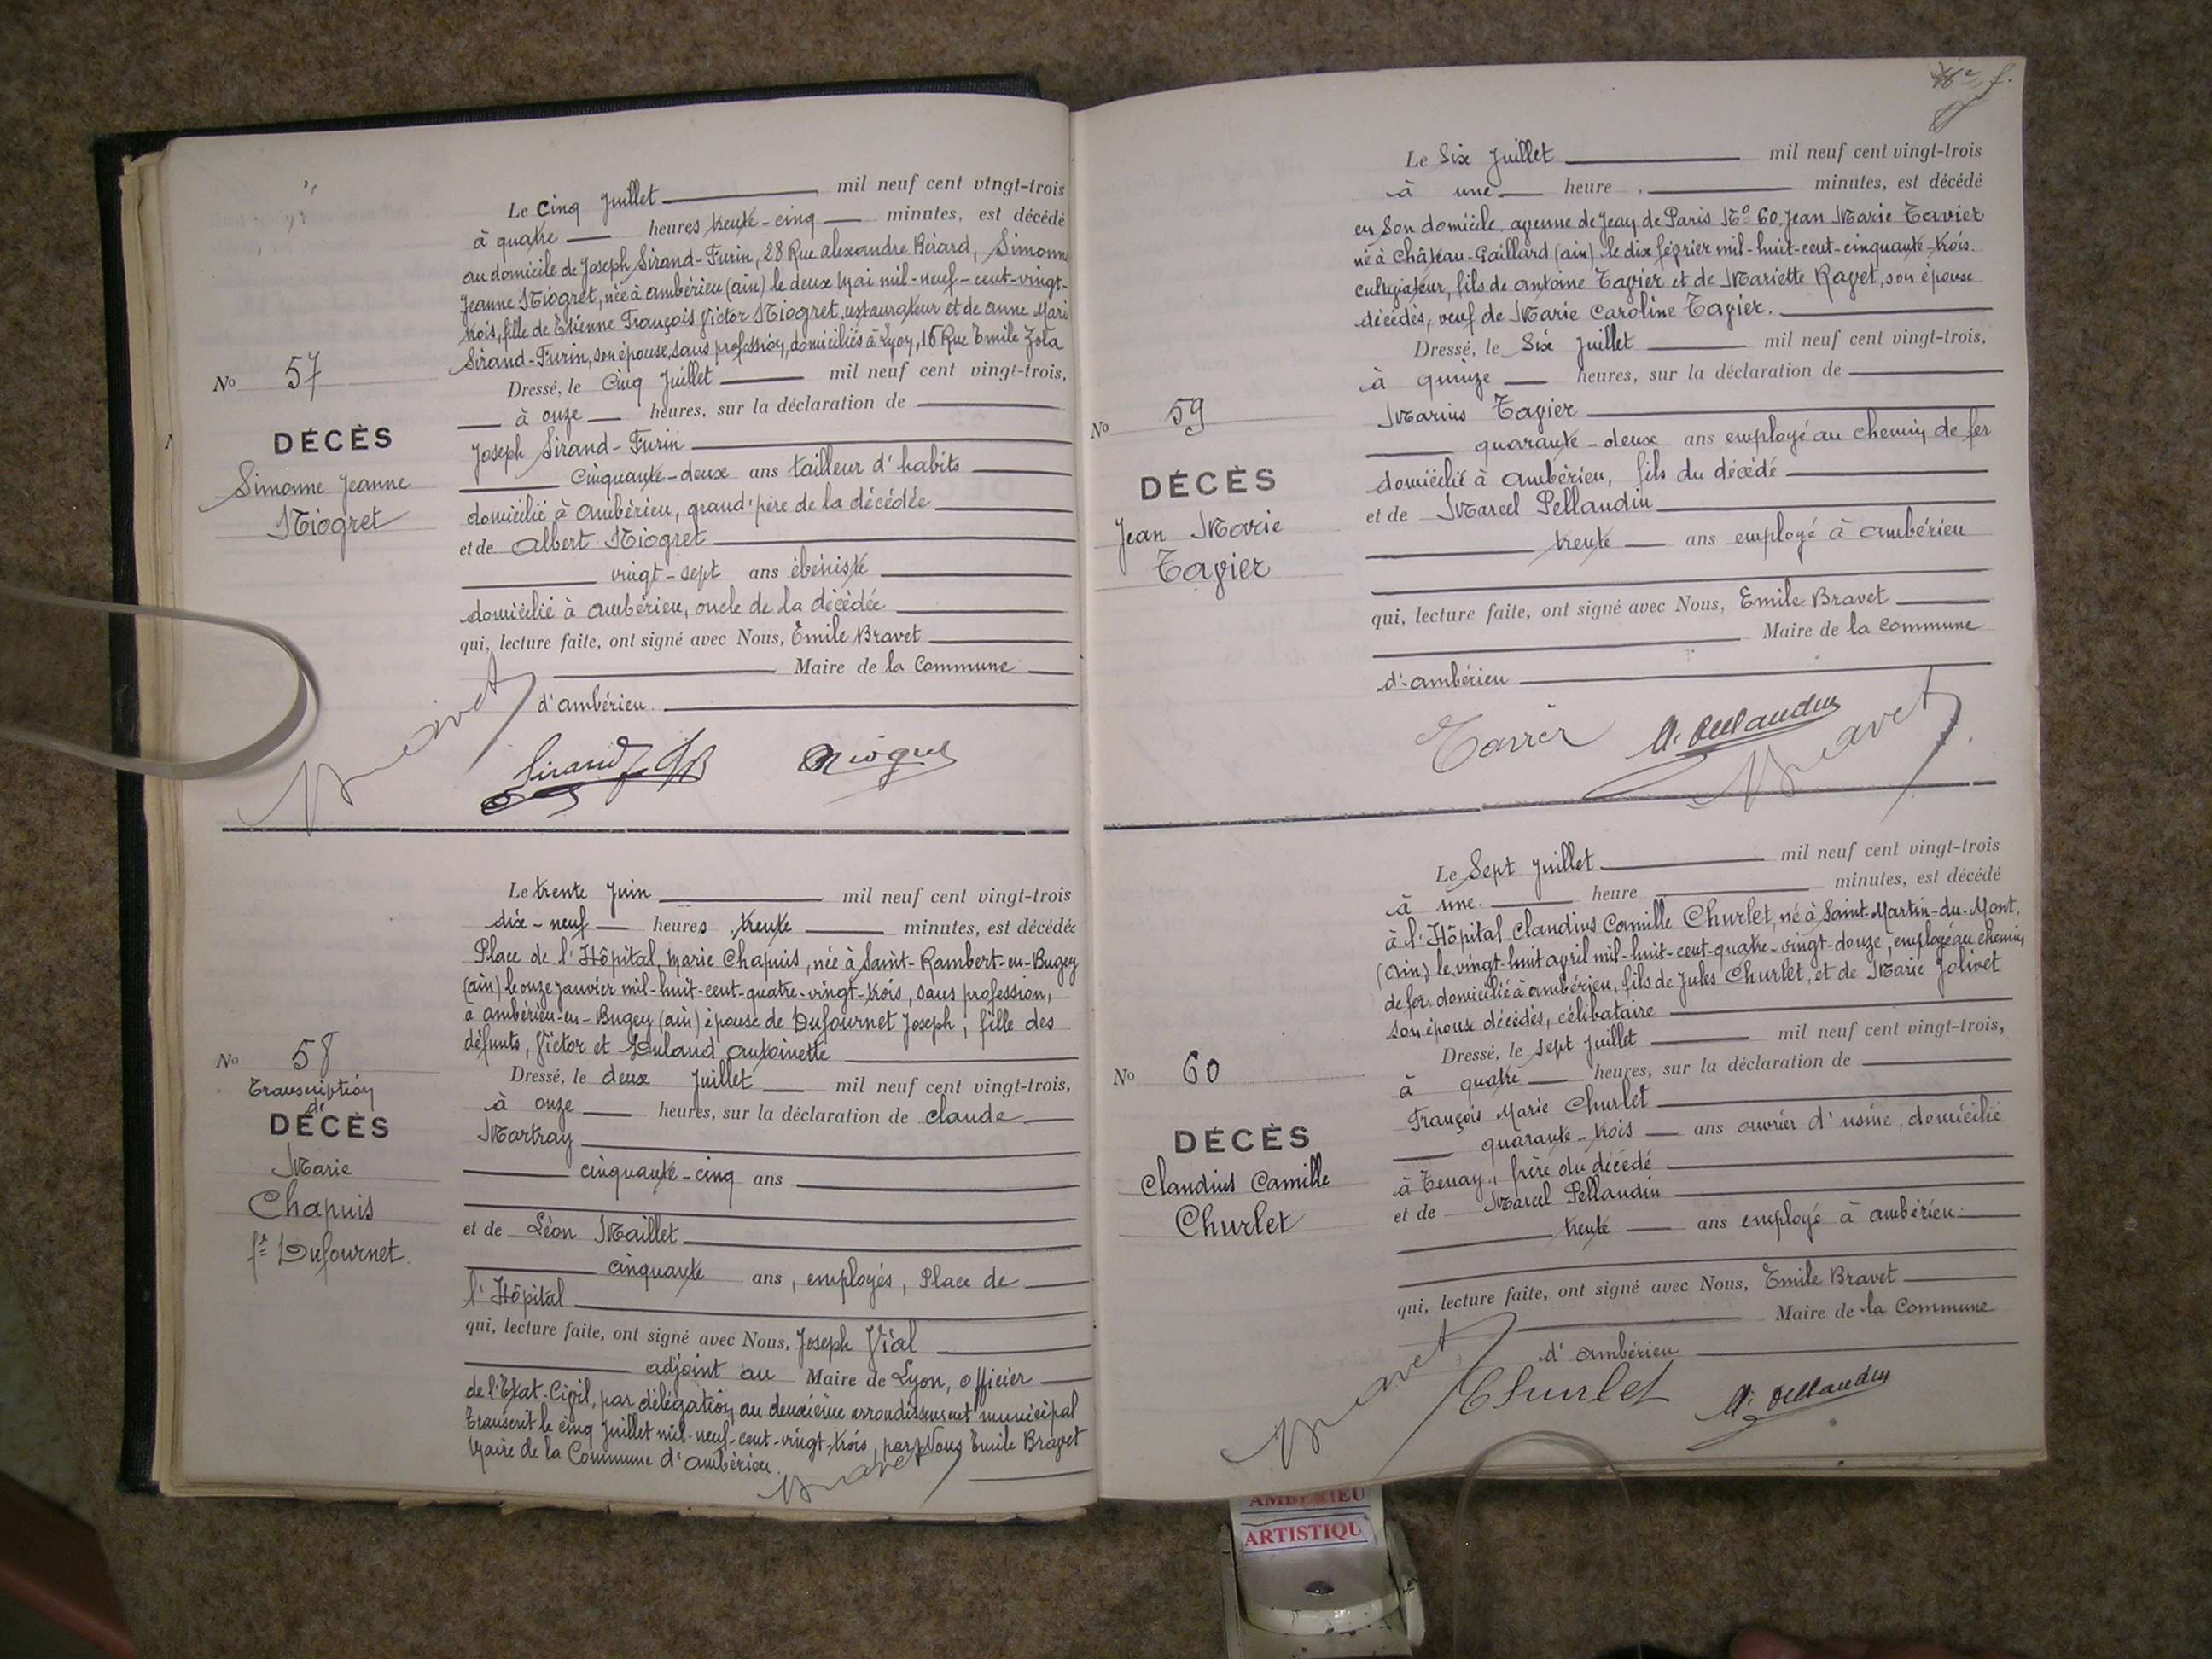 Le Cinq Juillet mil neuf cent vingt-trois
à quatre heures trente-cinq minutes, est décédé
au domicile de Joseph Sirand-Furin, 28 Rue alexandre Bérard, Simonne
Jeanne Niogret, née à ambérieu (ain) le deux Mai mil-neuf-cent-vingt-
trois, fille de Etienne François Victor Niogret, restaurateur et de anne Marie
Sirand-Furin, son épouse, sans profession, domiciliés à Lyon, 16 Rue Emile Zola
No 57
Dressé, le Cinq Juillet mil neuf cent vingt-trois,
à onze heures, sur la déclaration de
DÉCÈS
Joseph Sirand-Furin
Simonne Jeanne
Niogret
Cinquante-deux ans tailleur d'habits
domicilié à ambérieu, grand'père de la décédée
et de albert Niogret
vingt-sept ans ébéniste
domicilié à ambérieu, oncle de la décédée
qui, lecture faite, ont signé avec Nous, Emile Bravet
Maire de la Commune
d'ambérieu.
Bravet
Sirand
Niogret
Le trente Juin mil neuf cent vingt-trois
dix-neuf heures trente minutes, est décédée
Place de l'Hôpital, Marie Chapuis, née à Saint-Rambert-en-Bugey
(ain) le onze janvier mil-huit-cent-quatre-vingt-trois, sans profession,
à ambérieu-en-Bugey (ain) épouse de Dufournet Joseph, fille des
défunts, Victor et antoinette
No 58
Transcription
de
DÉCÈS
Marie
Chapuis
fe Dufournet.
Dressé, le deux Juillet mil neuf cent vingt-trois,
à onze heures, sur la déclaration de claude
Martray
cinquante-cinq ans
et de Léon Maillet
cinquante ans, employés, Place de
l'Hôpital
qui, lecture faite, ont signé avec Nous, Joseph Vial
adjoint au Maire de Lyon, officier
de l'Etat-Civil, par délégation au deuxième arrondissement municipal
Transcrit le cinq Juillet mil-neuf-cent-vingt-trois, par Nous Emile Bravet
Maire de la Commune d'ambérieu.
Bravet
Le Six Juillet mil neuf cent vingt-trois
à une heure minutes, est décédé
en Son domicile, avenue de Jean de Paris No 60, Jean Marie Tavier
né à Château-Gaillard (ain) le dix février mil-huit-cent-cinquante-trois.
cultivateur, fils de antoine Tavier et de Mariette Ravet, son épouse
décédés, veuf de Marie Caroline Tavier.
Dressé, le Six Juillet mil neuf cent vingt-trois,
à quinze heures, sur la déclaration de
No 59
DÉCÈS
Jean Marie
Tavier
Marius Tavier
quarante-deux ans employé au chemin de fer
domicilié à ambérieu, fils du décédé
et de Marcel Pellaudin
trente ans employé à ambérieu
qui, lecture faite, ont signé avec Nous, Emile Bravet
Maire de la Commune
d'ambérieu
Tavier
M. Pellaudin
Bravet
Le Sept Juillet mil neuf cent vingt-trois
à une heure minutes, est décédé
à l'Hôpital Claudius Camille Churlet, né à Saint-Martin-du-Mont,
(ain) le vingt-huit avril mil-huit-cent-quatre-vingt-douze, employé au chemin
de fer, domicilié à ambérieu, fils de Jules Churlet, et de Marie Jolivet
son épouse décédés, célibataire
No 60
DÉCÈS
Claudius Camille
Churlet
Dressé, le sept Juillet mil neuf cent vingt-trois,
à quatre heures, sur la déclaration de
François Marie Churlet
quarante-trois ans ouvrier d'usine, domicilié
à Tenay, frère du décédé
et de Marcel Pellaudin
trente ans employé à ambérieu
qui, lecture faite, ont signé avec Nous, Emile Bravet
Maire de la Commune
d'ambérieu
Bravet
Churlet
M. Pellaudin
AMBERIEU
ARTISTIQU